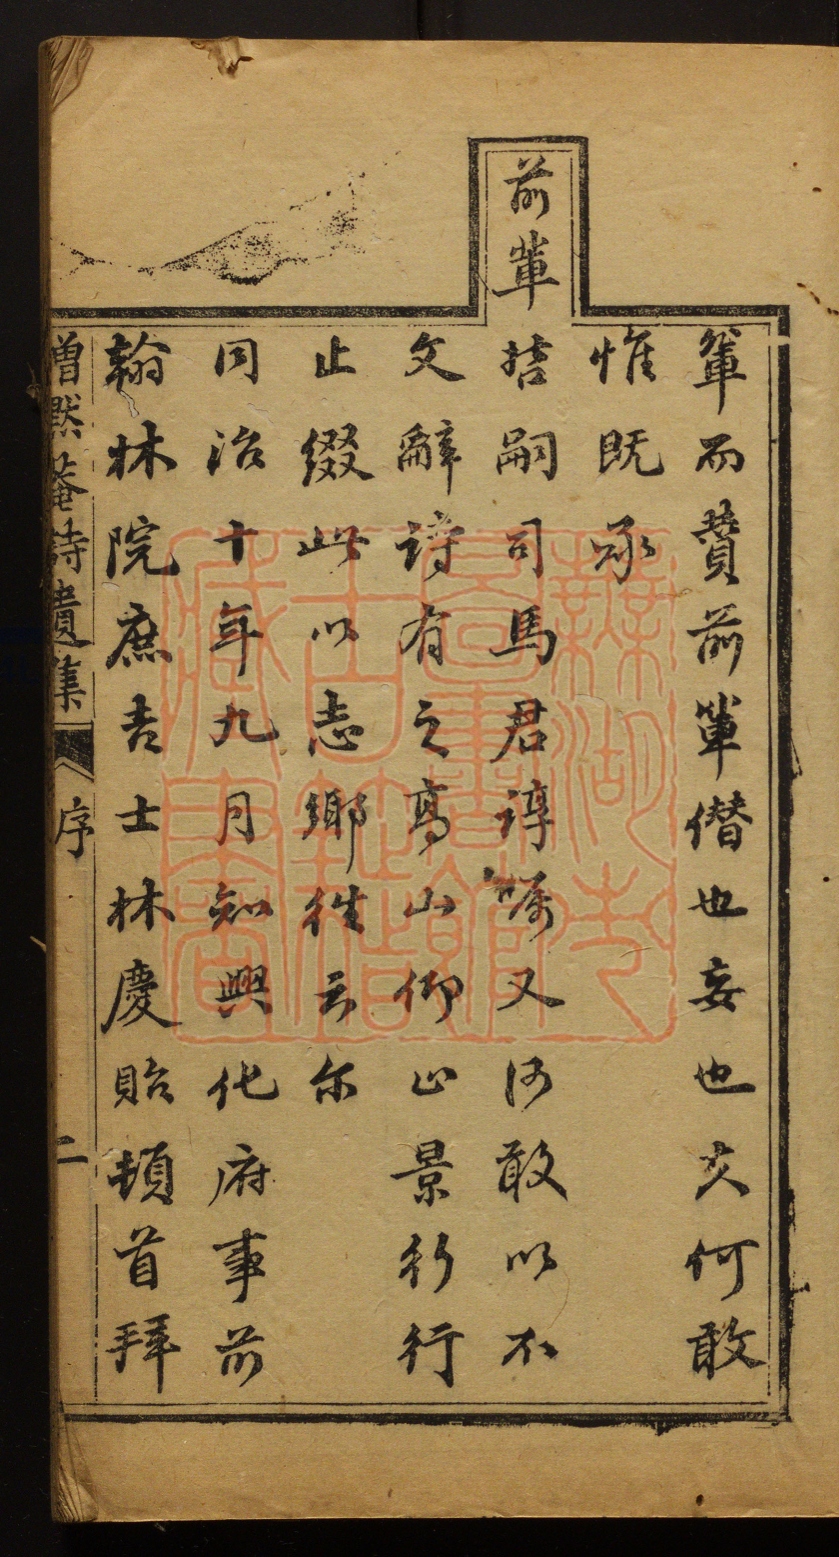 輩而贊前輩僭也妄也夫何敢
惟既承
前輩喆嗣司馬君諄嘱又何敢以不
文辭詩有之高山仰止景行行
止綴此以志鄉徃云尔
同治十年九月知興化府事前
翰林院庶吉士林慶貽頓首拜
曾黙菴詩遺集 序 二
蕪湖市圖書館古籍藏書